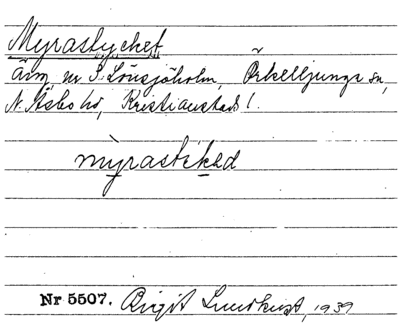 Myrastycket
Äng nr 3 Lönsjöholm, Örkelljunga sn,
N. Åsbo hd, Kristianstads l.
mỳrastɛkəd
Nr 5507. Birgit Lundkvist, 1939